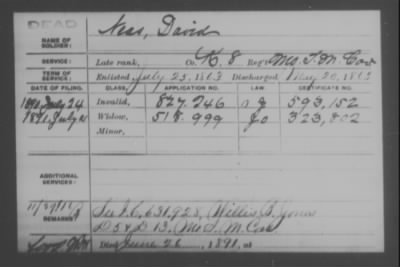 DEAD
Ness, David
NAME OF SOLDIER:
SERVICE: Late rank, Co. K. 8 Reg't Mo. S. M. Cav
TERM OF SERVICE: Enlisted July 25, 1863 Discharged May 20, 1865
DATE OF FILING. CLASS. APPLICATION NO. LAW. CERTIFICATE NO.
1890 July 24 Invalid, 827.246 593,152
1891. July 21 Widow, 518.999 323,802
Minor,
ADDITIONAL SERVICES:
REMARKS: See 631,928, Willis B. Jones
D 5 & D 13. Mo S. M. Cav
Died June 26, 1891, at